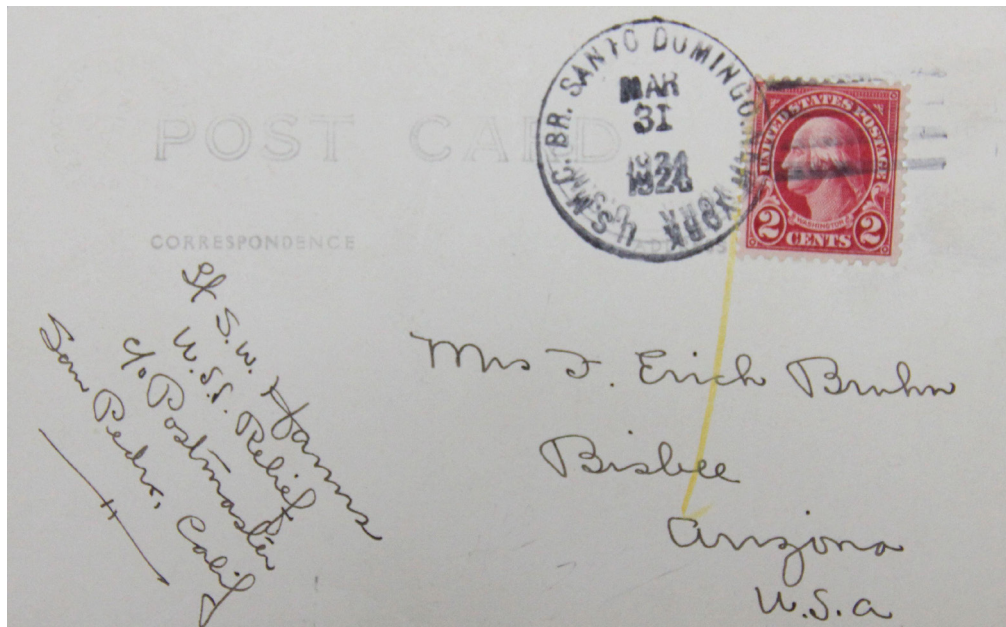 POST CARD
U.S.M.C. BR. SANTO DOMINGO. NEW YORK
MAR
31
1924
UNITED STATES POSTAGE
WASHINGTON
2 CENTS 2
CORRESPONDENCE
S. W.
U.S.S. Relief
c/o Postmaster
San Pedro, Calif
Mrs F. Erich Bruhn
Bisbee
Arizona
U.S.a